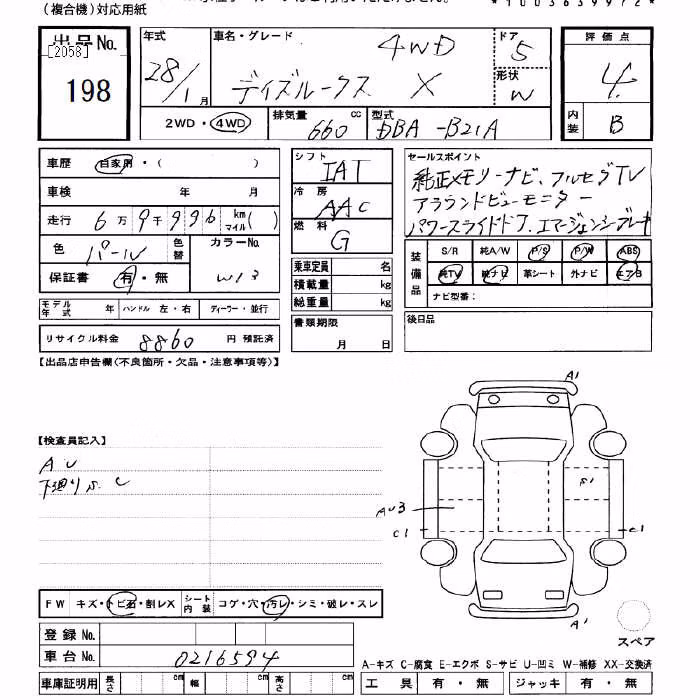 (複合機)対応用紙
*1003639972*
出品No.
[2058]
198
年式
28/1月
車名・グレード
4WD
デイズルークス X
ドア
5
形状
W
評価点
4
内装
B
2WD・4WD
排気量
660 cc
型式
DBA-B21A
車歴 自家用・( )
車検 年 月
走行 6万9千996 km マイル( )
色 パール 色替
カラーNo.
W13
保証書 有・無
モデル年式 年 ハンドル 左・右 ディーラー・並行
リサイクル料金 8860 円 預託済
シフト
IAT
冷房
AAC
燃料
G
乗車定員 名
積載量 kg
総重量 kg
書類期限
月 日
セールスポイント
純正メモリーナビ、フルセグTV
アラウンドビューモニター
パワースライドドア、エマージェンシーブレーキ
装備品
S/R 純A/W P/S P/W ABS
純TV 純ナビ 革シート 外ナビ エアB
ナビ型番:
後日品
【出品店申告欄(不良箇所・欠品・注意事項等)】
【検査員記入】
AU
下廻りS.C
A1
S1
AU3
C1
C1
A1
スペア
FW キズ・トビ石・割レX シート内装 コゲ・穴・汚レ・シミ・破レ・スレ
登録No.
車台No. 0216594
車庫証明用 長さ cm 幅 cm 高さ cm
A-キズ C-腐食 E-エクボ S-サビ U-凹ミ W-補修 XX-交換済
工具 有・無 ジャッキ 有・無